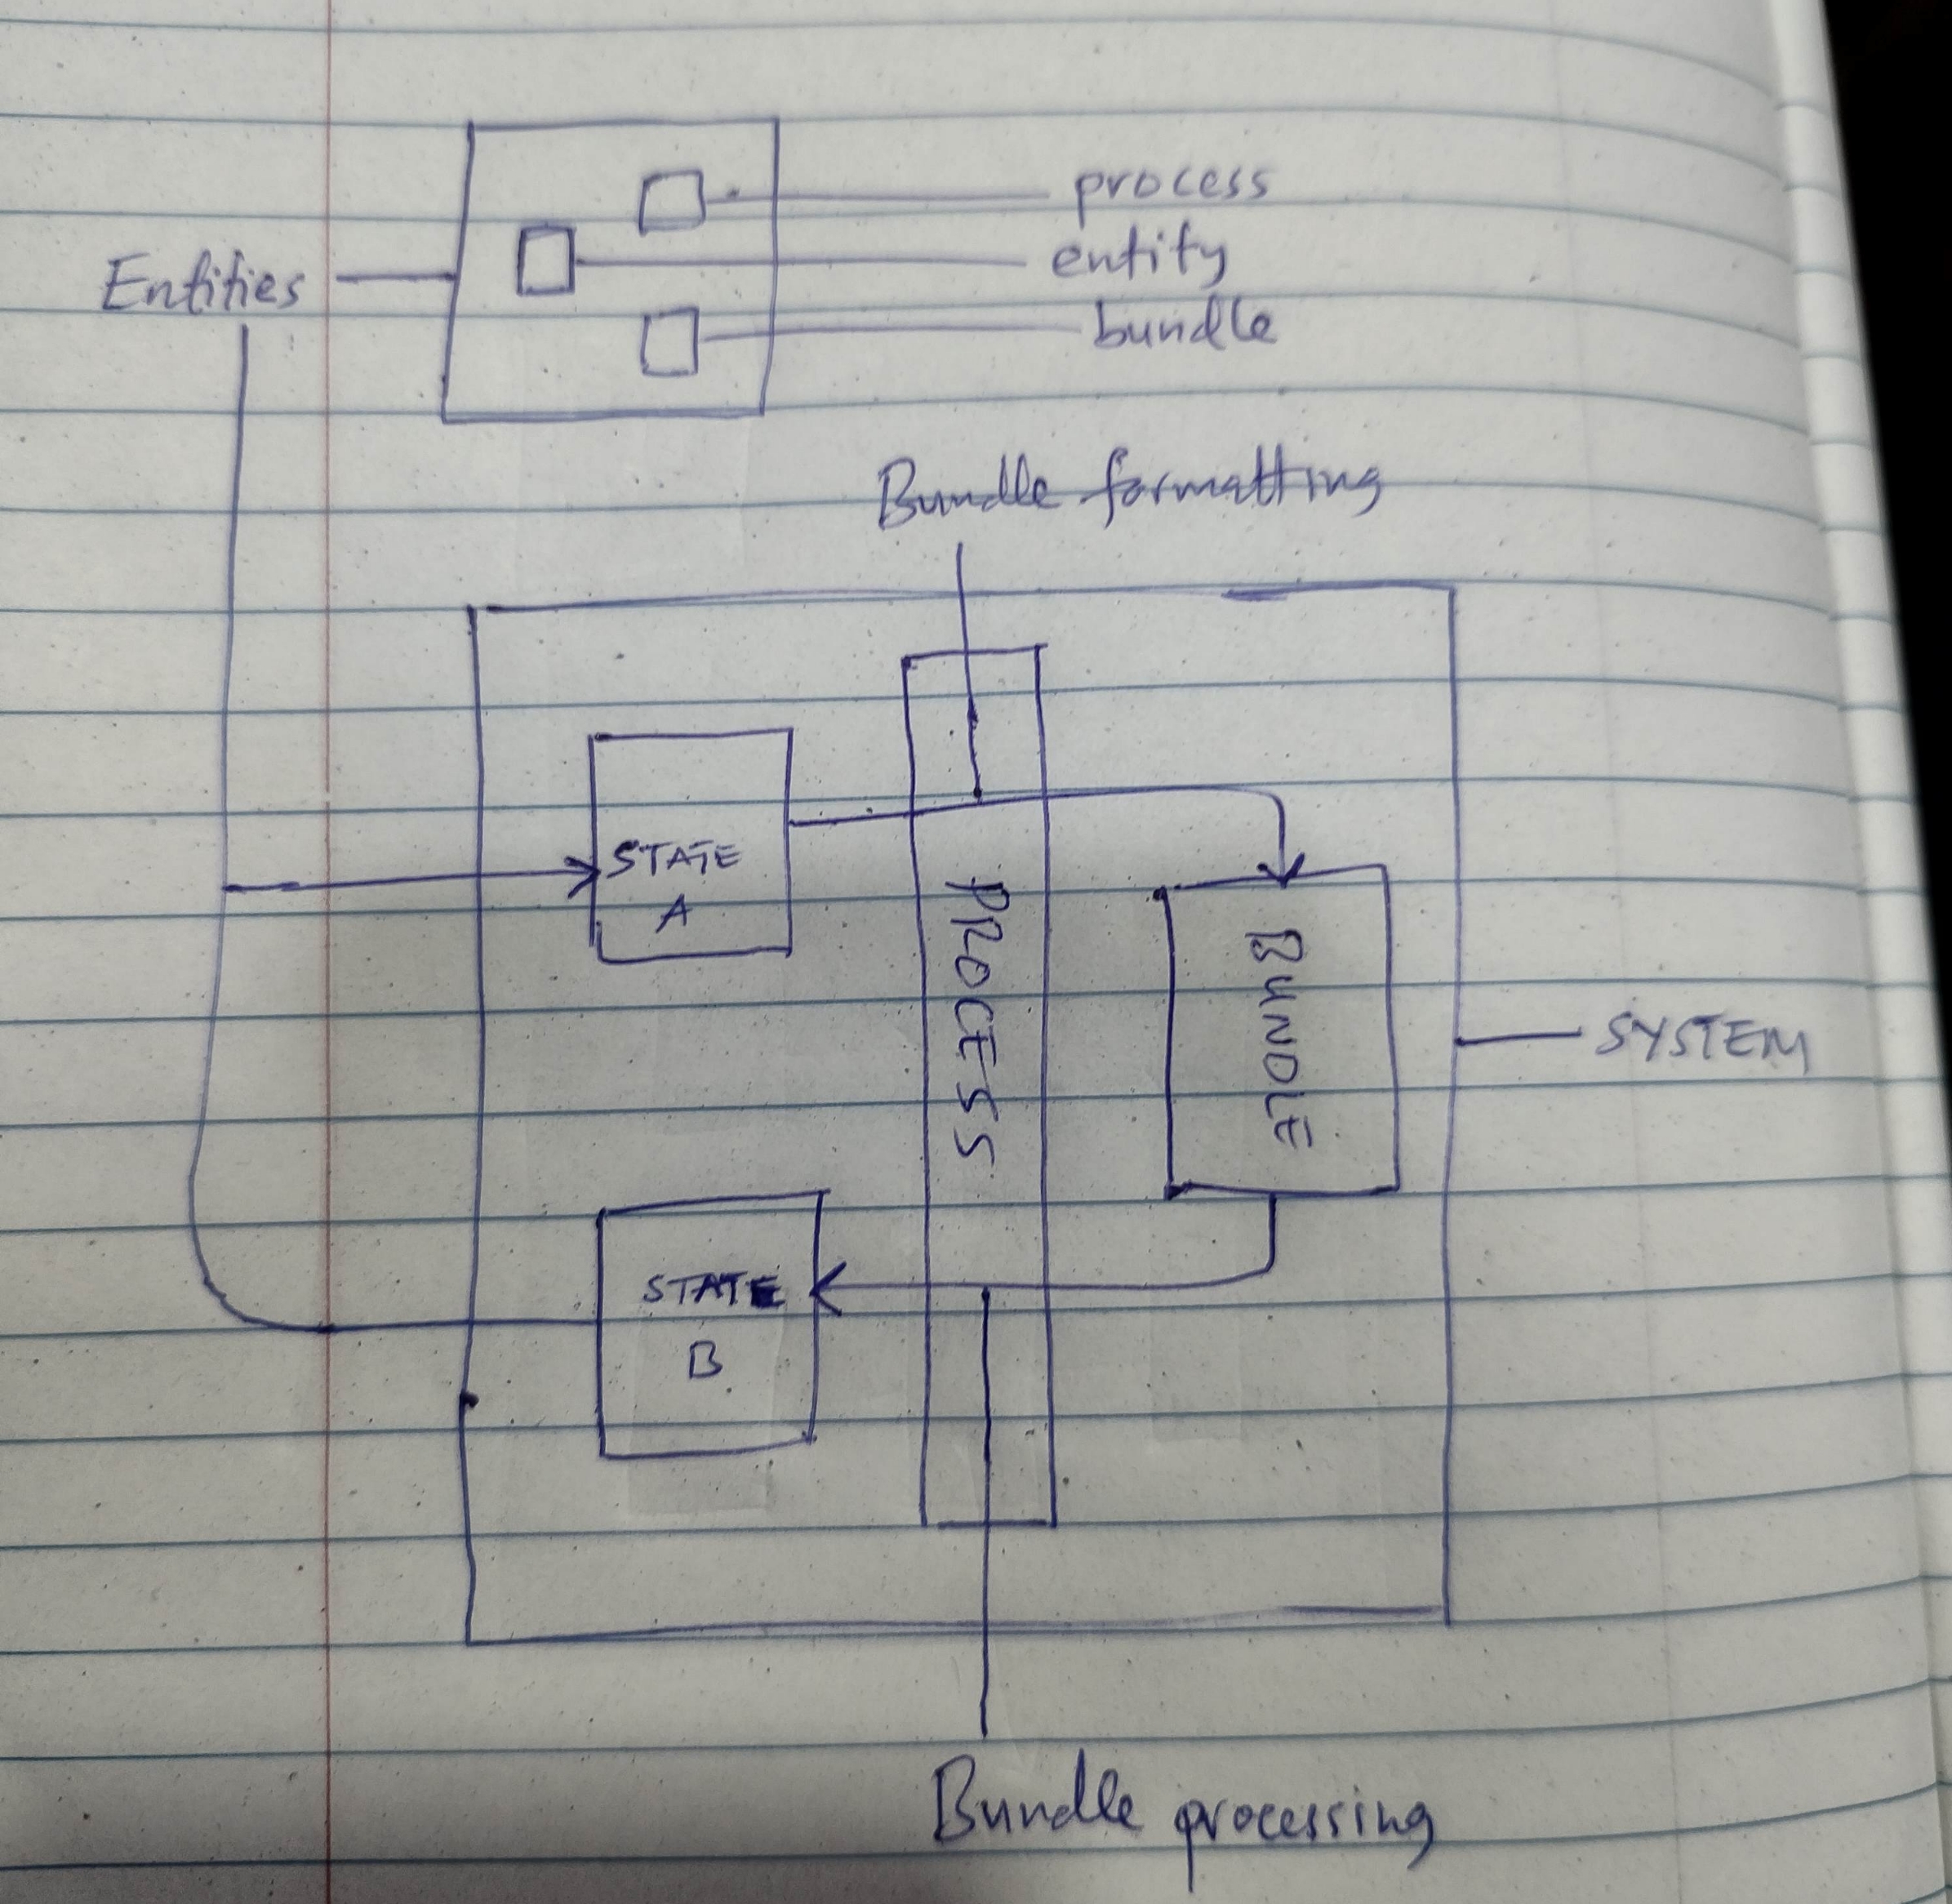 process
entity
Entities
bundle
Bundle formatting
STATE
A
PROCESS
BUNDLE
SYSTEM
STATE
B
Bundle processing